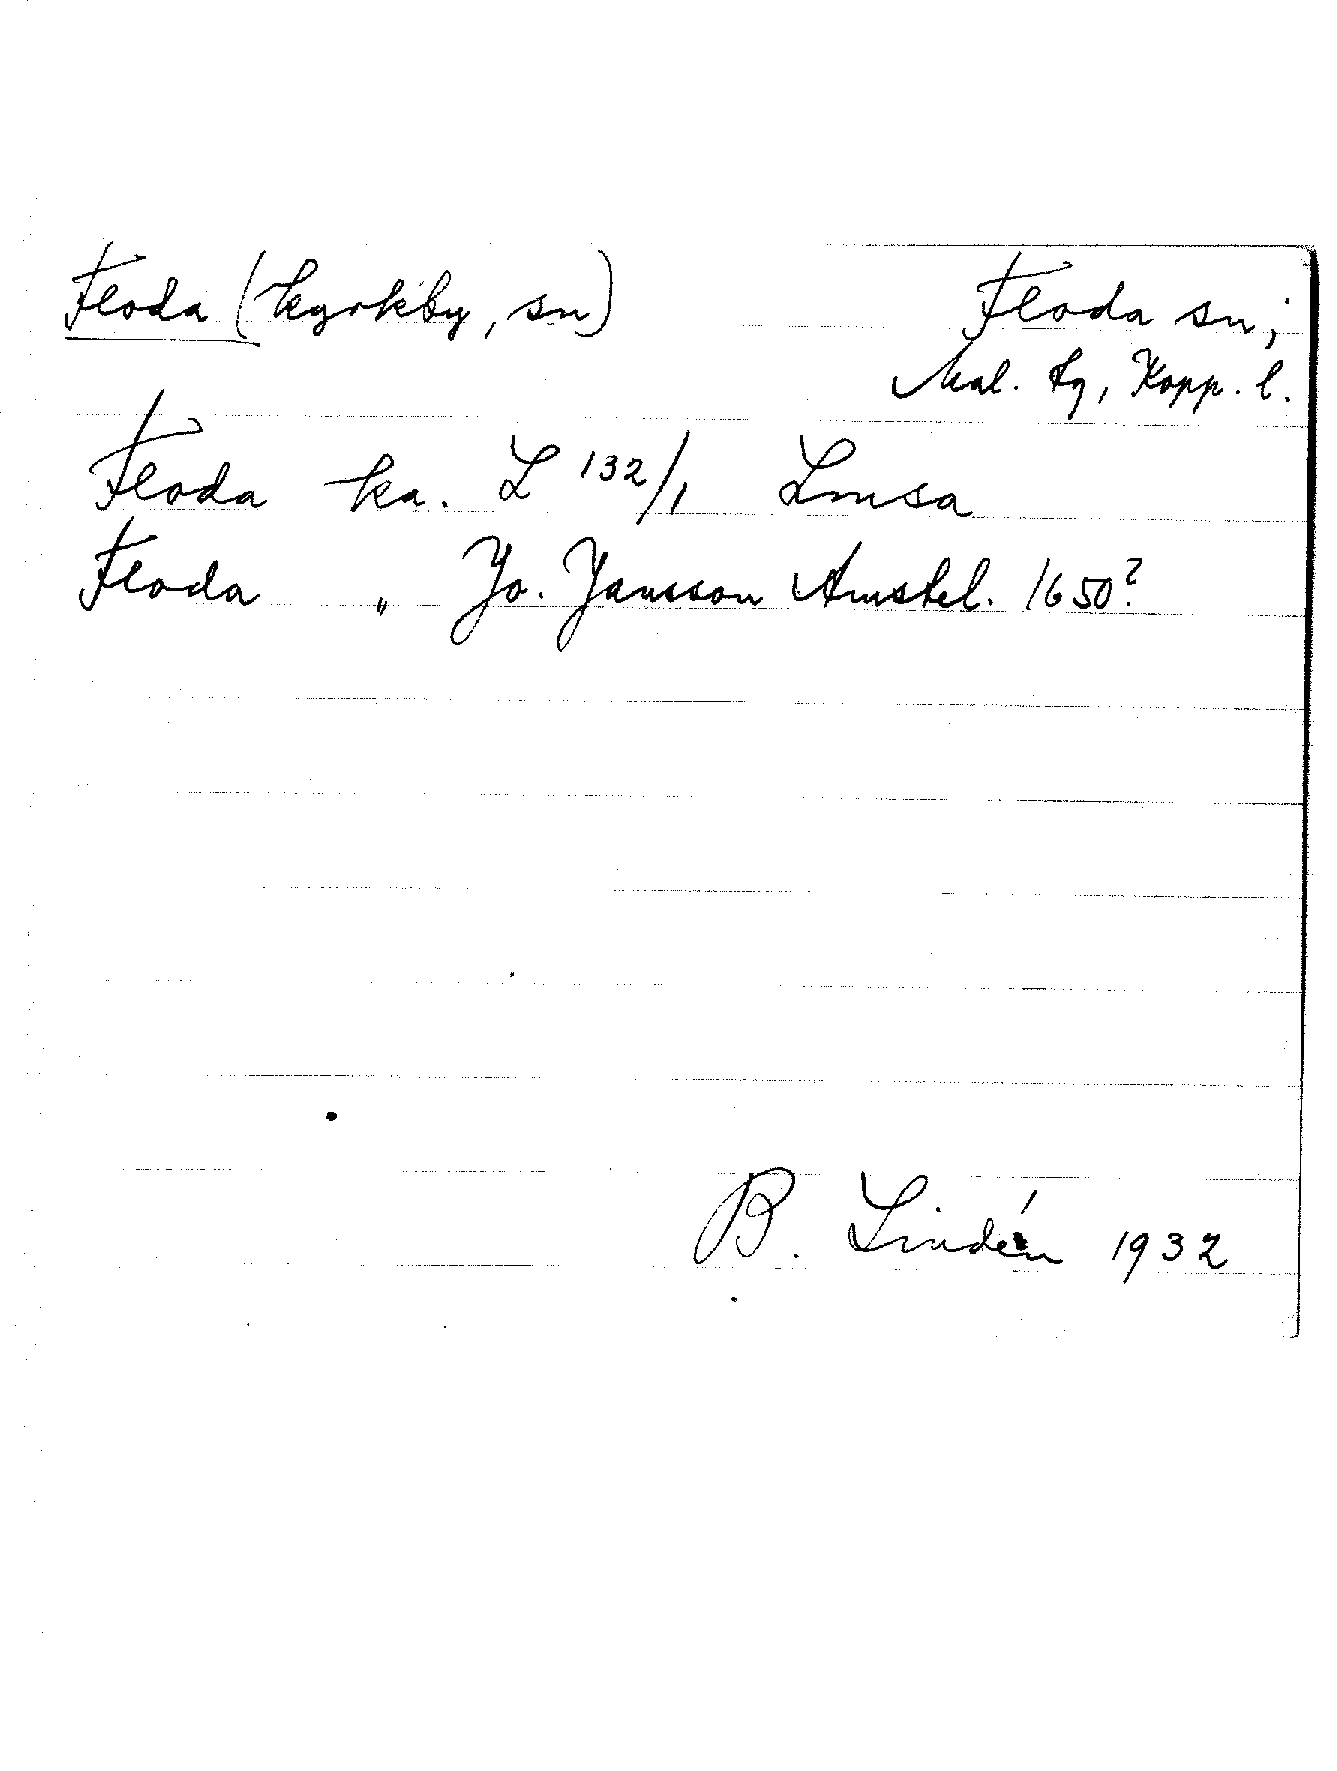 Floda (kyrkby, sn)
Floda sn;
Nal. tg, Kopp. l.
Floda ka. L 132/1 Lmsa
Floda " Jo. Jansson Amstel. 1650?
B. Lindén 1932